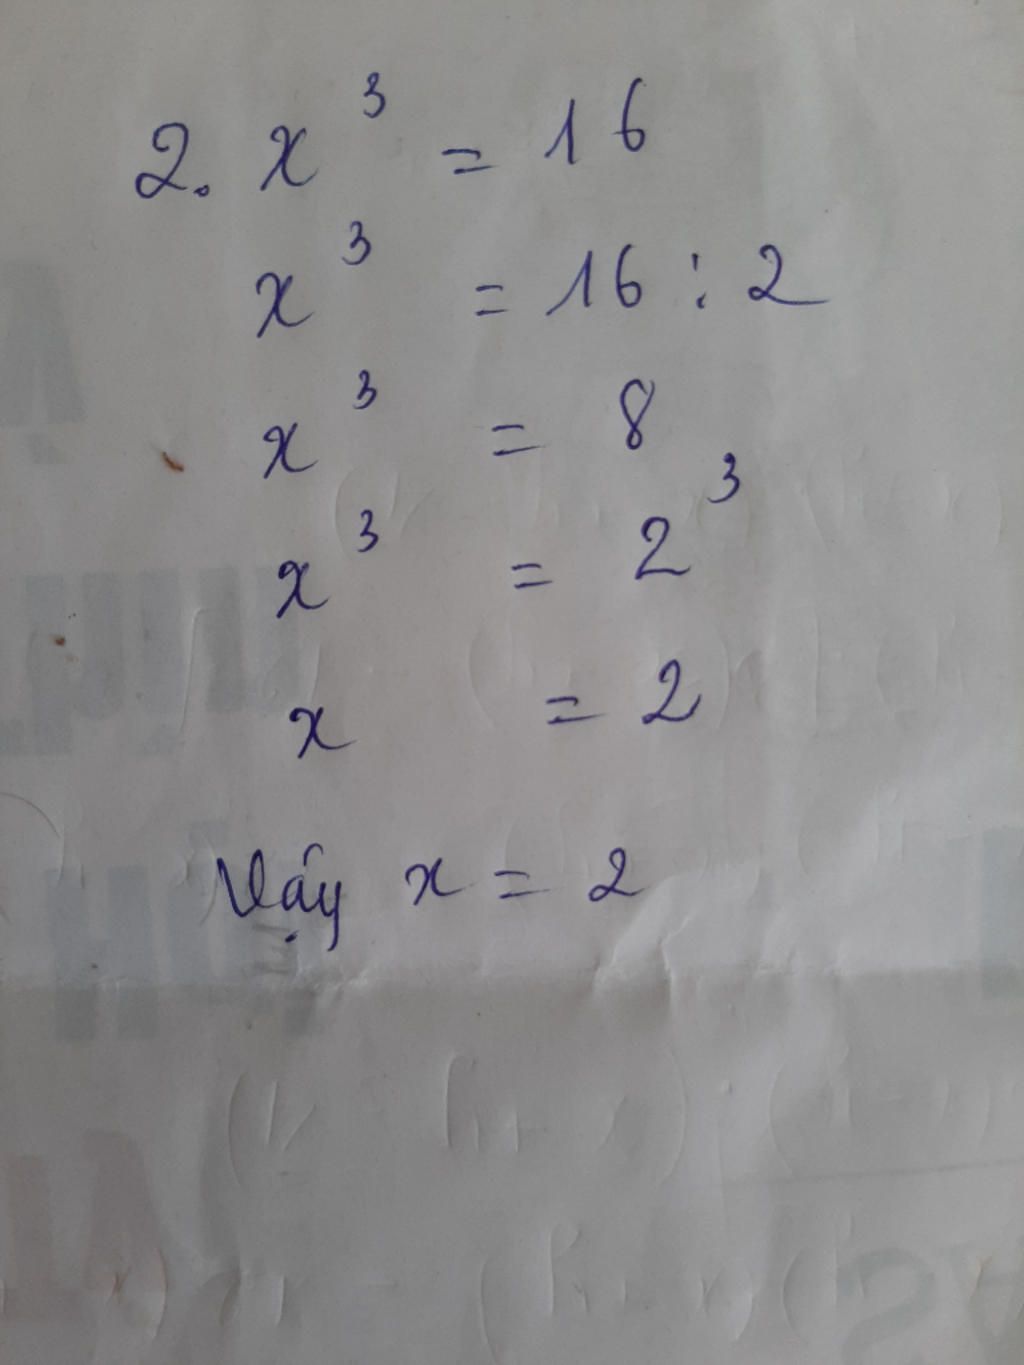 2. x³ = 16
x³ = 16 : 2
x³ = 8
x³ = 2³
x = 2
Vậy x = 2